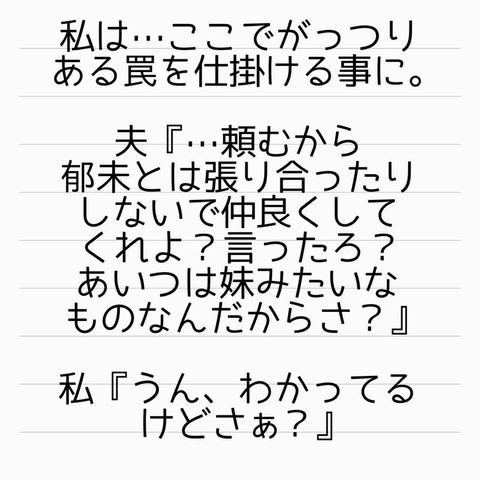 私は…ここでがっつり
ある罠を仕掛ける事に。
夫『…頼むから
郁未とは張り合ったり
しないで仲良くして
くれよ？言ったろ？
あいつは妹みたいな
ものなんだからさ？』
私『うん、わかってる
けどさぁ？』